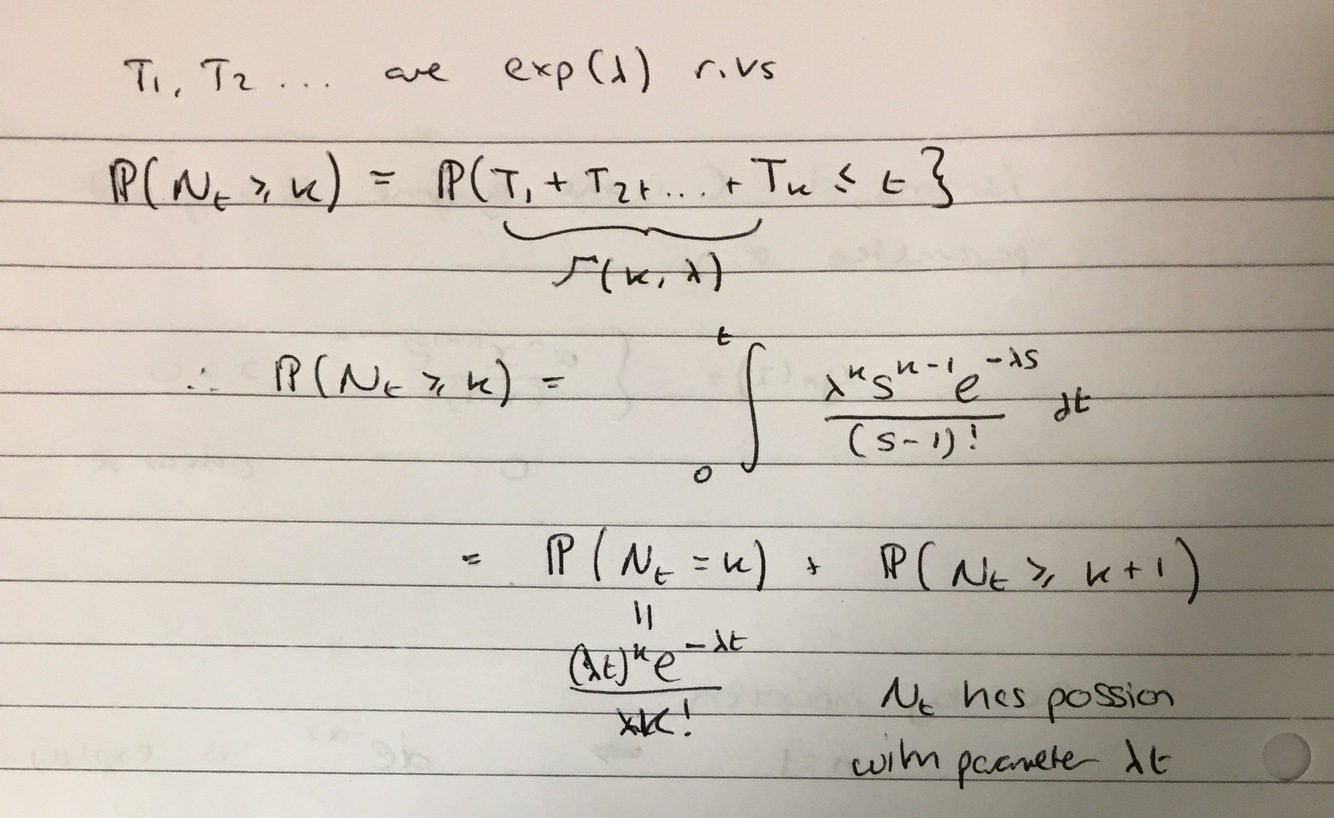 T₁, T₂ ... are exp(λ) r.vs
ℙ(Nₜ ⩾ k) = ℙ(T₁ + T₂ + ... + Tₖ ≤ t}
Γ(k, λ)
∴ ℙ(Nₜ ⩾ k) = ∫₀ᵗ λᵏ sᵏ⁻¹ e^(-λs) / (s-1)! dt
= ℙ(Nₜ = k) + ℙ(Nₜ ⩾ k+1)
=
(λt)ᵏ e^(-λt) / k!
Nₜ has possion
with parameter λt